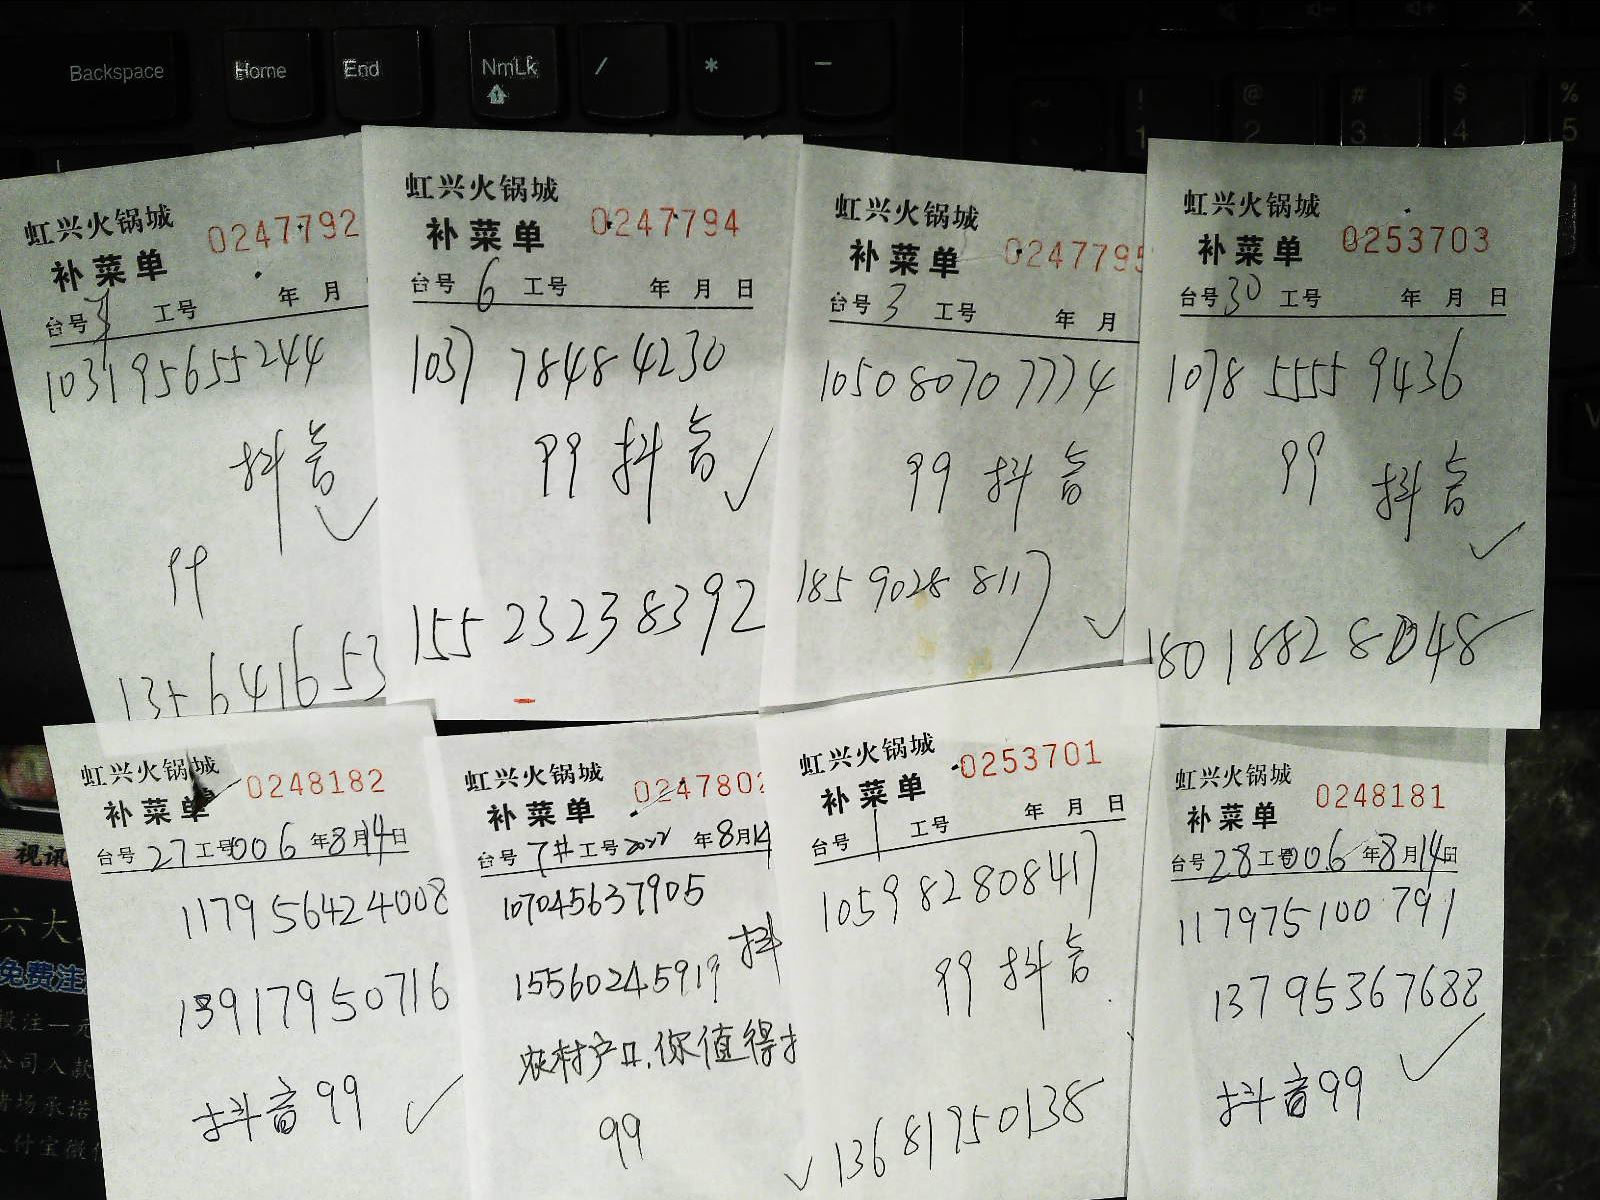 Backspace
Home
End
NmLk
/
*
-
虹兴火锅城
补菜单
0247792
台号 工号 年 月
103195655244
抖音
99
虹兴火锅城
补菜单
0247794
台号 6 工号 年 月 日
1037 78484230
99 抖音
155 23238392
虹兴火锅城
补菜单
024779
台号 3 工号 年 月
1050 8070 7774
99 抖音
185 9028 8117
虹兴火锅城
补菜单
0253703
台号 30 工号 年 月 日
1078 5555 9436
99
抖音
180 1882 8048
虹兴火锅城
补菜单
0248182
台号 27 工号 006 年 8月14日
117956424008
13917950716
抖音99
虹兴火锅城
补菜单
024780
台号 7# 工号 2022 年 8月14
107045637905
抖
农村产品.你值得
99
虹兴火锅城
补菜单
0253701
台号 1 工号 年 月 日
1059 82808417
99 抖音
13681950138
虹兴火锅城
补菜单
0248181
台号 28 工号 006 年 8月14日
117975100791
13795367688
抖音99
视讯
六大
免费注
投注一元
公司入款